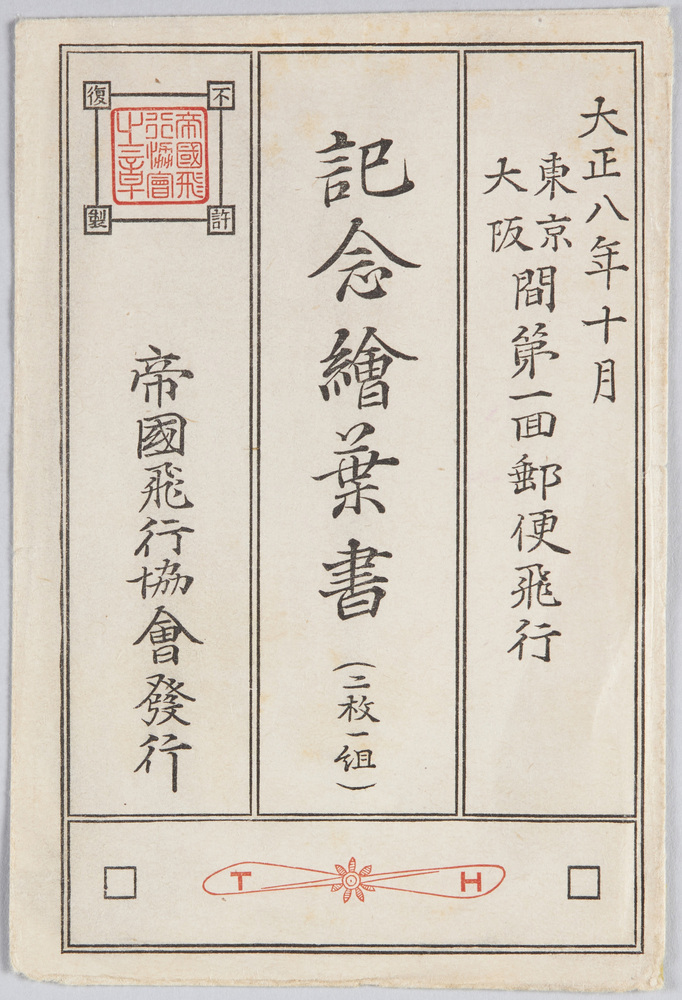 大正八年十月
東京
大阪
間第一回郵便飛行
記念繪葉書
(二枚一組)
不許復製
帝國飛行協會之章
帝國飛行協會發行
T H